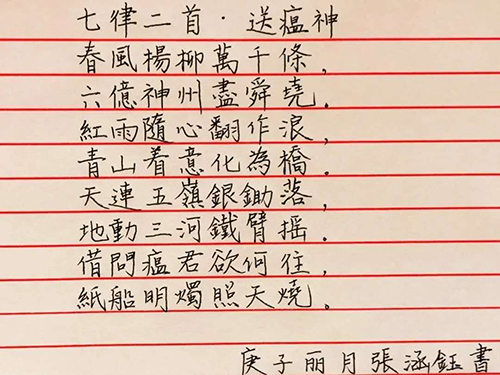 七律二首·送瘟神
春風楊柳萬千條，
六億神州盡舜堯。
紅雨隨心翻作浪，
青山着意化為橋。
天連五嶺銀鋤落，
地動三河鐵臂摇。
借問瘟君欲何往，
紙船明燭照天燒。
庚子丽月張涵鈺書